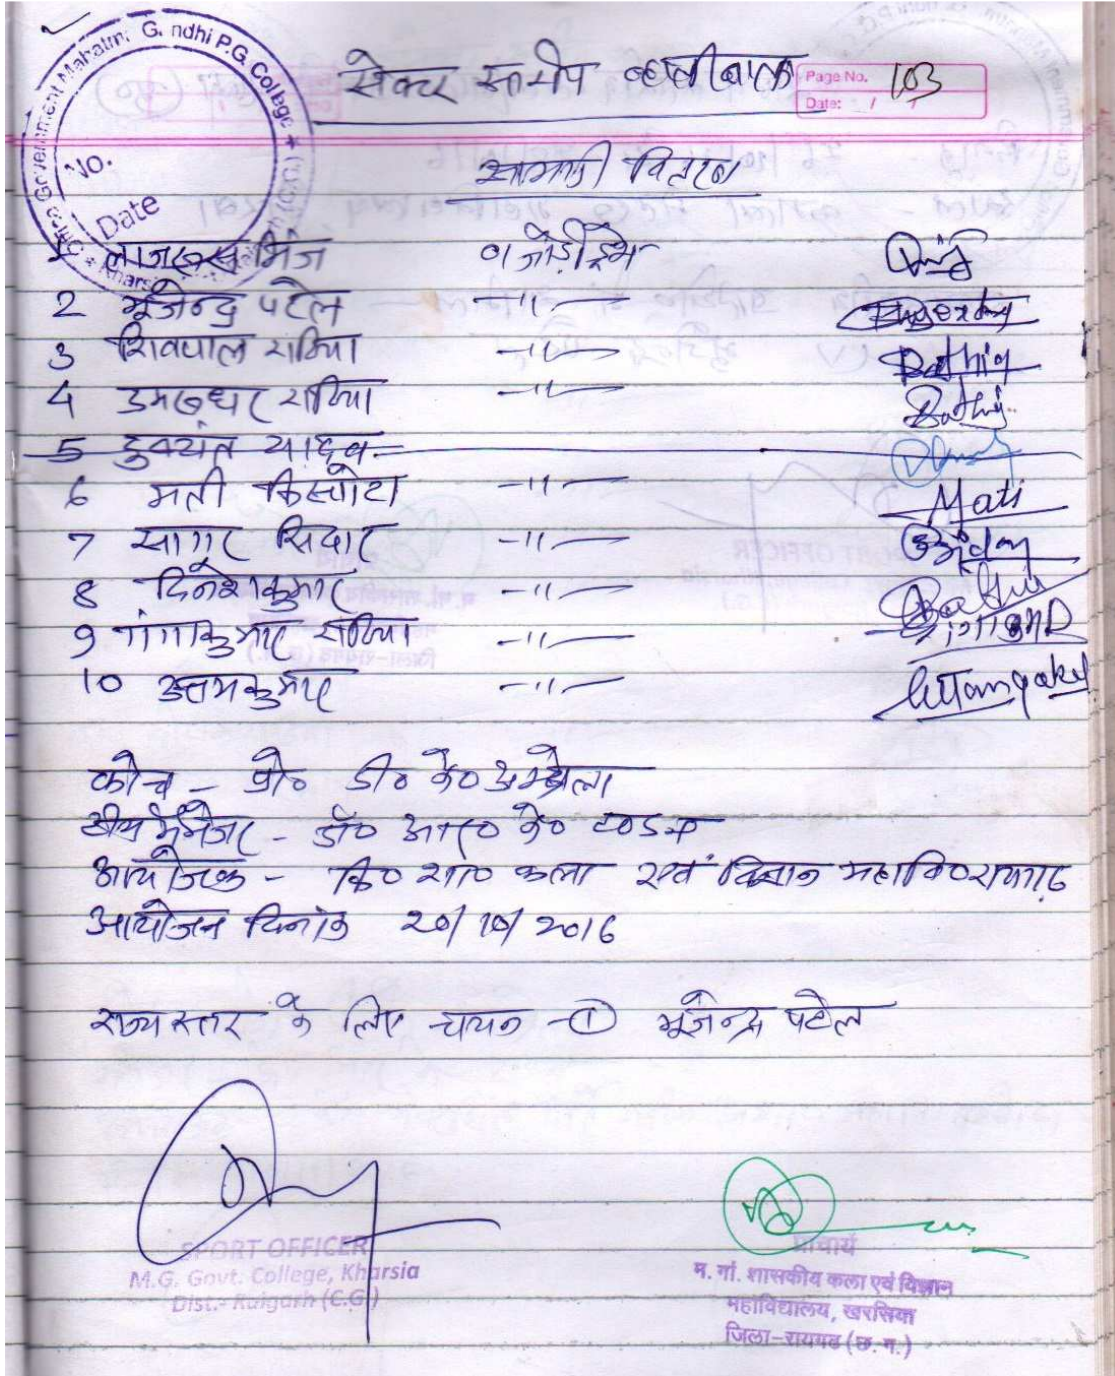 Office Government Mahatma Gandhi P.G. College
Kharsia
No.
Date
सेक्टर स्तरीय व्हालीबाल
Page No. 103
Date: /
सामाग्री वितरण
1 मिंज 01 जोड़ी ड्रेस
2 भूजेन्द्र पटेल -11-
3 शिवपाल राठिया -11- Rathia
4 राठिया -11- Rathia
5 दुष्यंत यादव
6 मती किस्पोटा -11- Mati
7 सागर सिदार -11-
8 दिनेश कुमार -11- Rathia
9 गंगाकुमार राठिया -11-
10 उत्तम कुमार -11-
कोच - प्रो० डी० के०
टीम मैनेजर - डॉ० आर० के० टण्डन
आयोजक - कि० शा० कला एवं विज्ञान महावि० रायगढ़
आयोजन दिनांक 20/10/2016
राज्य स्तर के लिए चयन - ① भूजेन्द्र पटेल
SPORT OFFICER
M.G. Govt. College, Kharsia
Dist.- Raigarh (C.G.)
प्राचार्य
म. गां. शासकीय कला एवं विज्ञान
महाविद्यालय, खरसिया
जिला-रायगढ (छ. ग.)